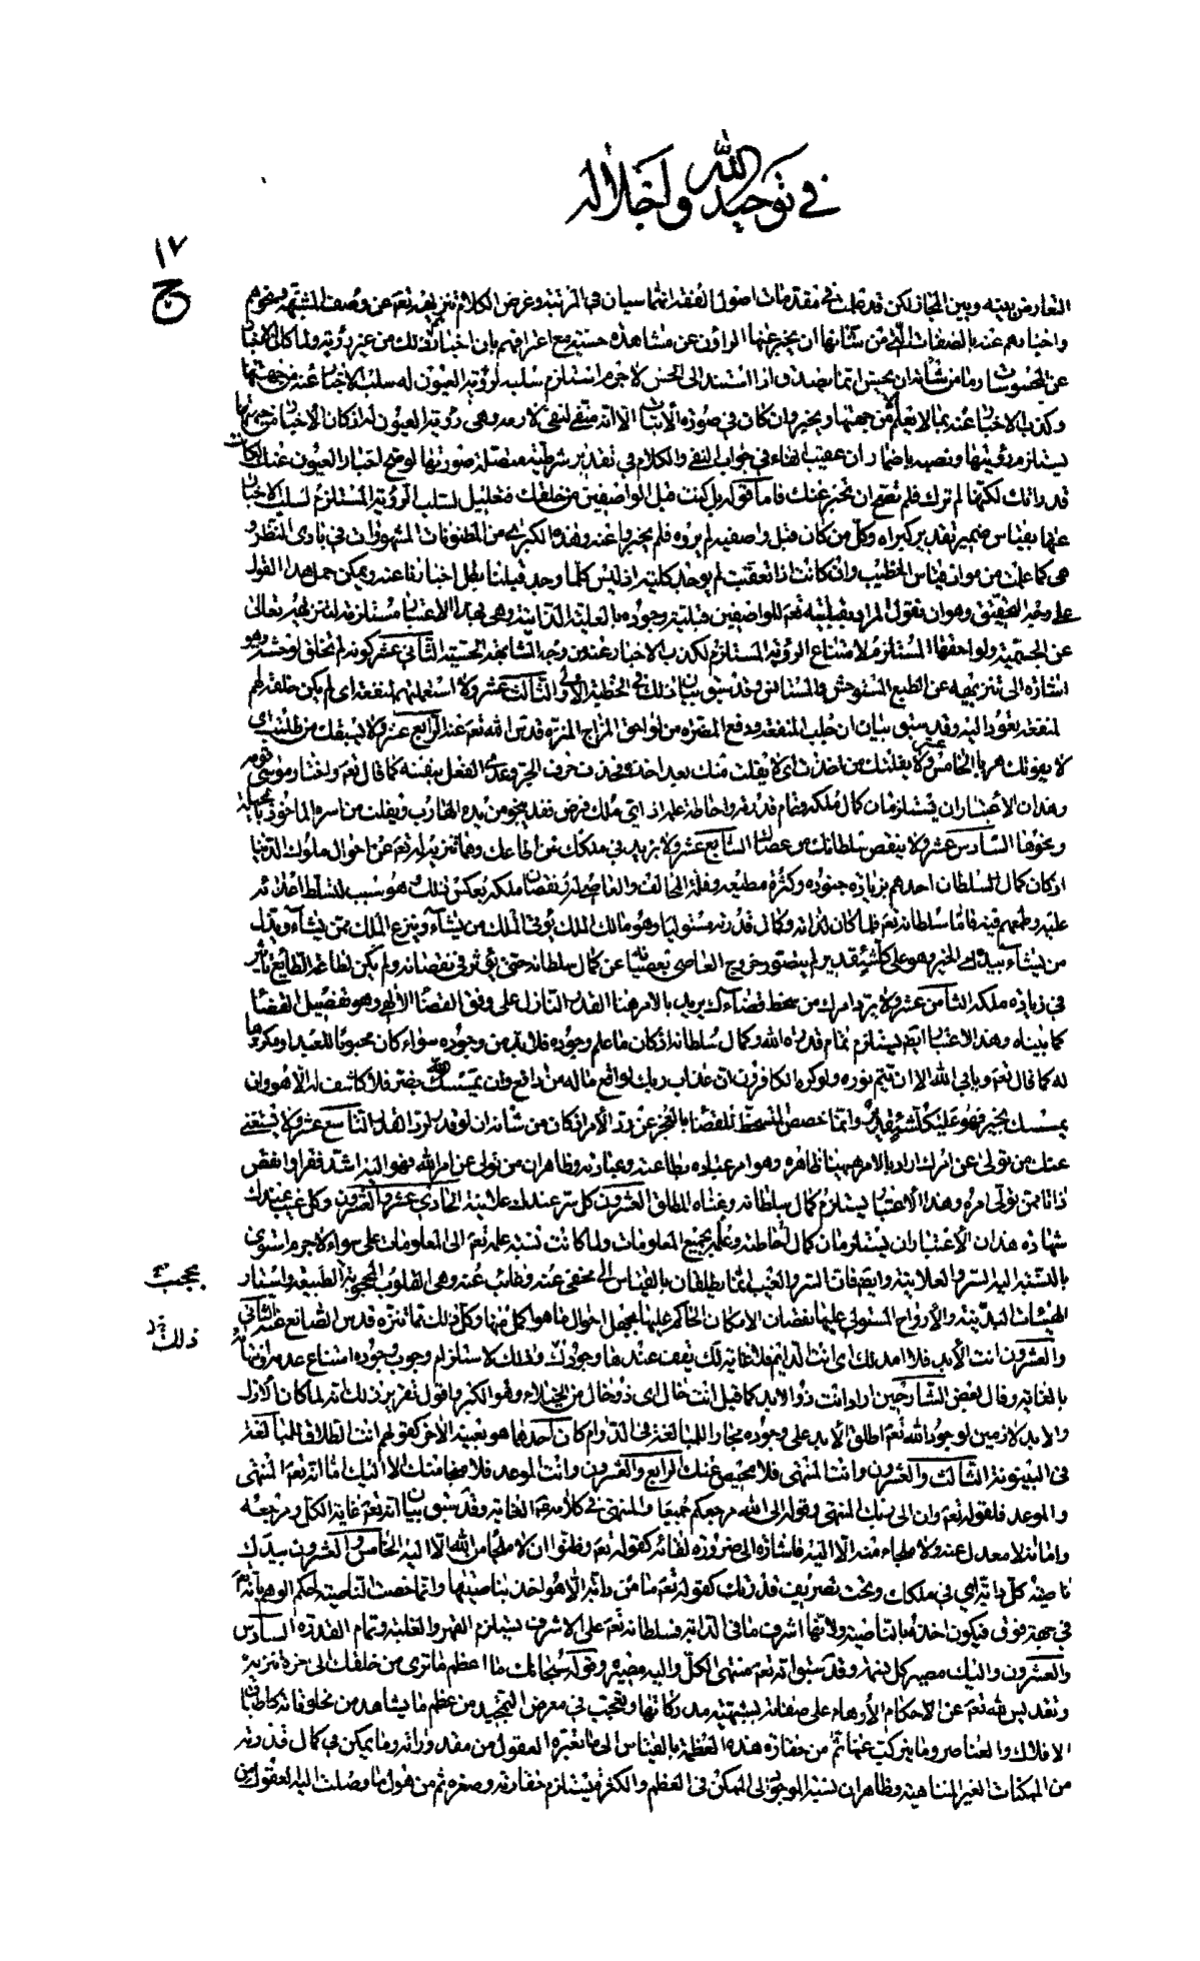 في توحيد الله واجلاله
١٧
ج
التعارض بينه وبين المجاز لكن قد علمت في مقدمات اصول الفقه انهما سيان في المرتبة وغرض الكلام تنزيهه تعم عن وصف المشبهة ونحوهم
واخبارهم عنه بالصفات التي من شانها ان يخبر عنها الراؤن عن مشاهدة حسية مع اعترافهم بان اخبارهم ذلك من غير رؤية ولما كان الاخبار
عن المحسوسات وما من شانه ان يحس انما يصدق اذا استند الى الحس لا جرم استلزم سلبه لرؤية العيون له سلب الاخبار عنه من جهتها
وكذب الاخبار عنه بما لا يعلم الا من جهتها ويخبر وان كان في صورة الاثبات الا انه منفي لنفي لازمه وهي رؤية العيون له اذ كان الاخبار من جهتها
يستلزم رؤيتها ونصبه باضمار ان عقيب الفاء في جواب النفي والكلام في تقدير شرطية متصلة صورتها لو صح اخبار العيون عنك لكانت
قد راتك لكنها لم ترك فلم تصح ان تخبر عنك فاما قوله بل كنت قبل الواصفين من خلقك فتعليل لسلب الرؤية المستلزم لسلب الاخبار
عنها بقياس ضمير تقدير كبراه وكل من كان قبل واصفيه لم يروه فلم يخبروا عنه وهذه الكبرى من المظنونات المشهورات في بادى النظر و
هي كما علمت من مواد قياس الخطيب وان كانت اذا تعقبت لم يوجد كلية اذ ليس كلما وجد قبلنا بطل اخبارنا عنه ويمكن حمل هذا القول
على وجه التحقيق وهو ان نقول المراد بقبليته تعم للواصفين قبلية وجوده بالعلية الذاتية وهي بهذا الاعتبار مستلزمة لتنزيهه تعالى
عن الجسمية ولواحقها المستلزم لامتناع الرؤية المستلزم لكذب الاخبار عنه من وجه المشابهة الحسية الثاني عشر كونه لم يخلق لوحشة وهو
اشارة الى تنزيهه عن الطبع المستوحش والمستانس وقد سبق بيان ذلك في الخطبة الاولى الثالث عشر ولا استعملتهم لمنفعة اى لم يكن خلقه لهم
لمنفعة يعود اليه وقد سبق بيان ان جلب المنفعة ودفع المضرة من لواحق المزاج المنزه قدس الله تعم عنه الرابع عشر ولا يسبقك من طلبت اى
لا يفوتك هربا الخامس عشر ولا يفلتك من اخذت اى لا يفلت منك بعد اخذه فحذف حرف الجر وعدى الفعل بنفسه كما قال تعم واختار موسى قومه
وهذان الاعتباران يستلزمان كمال ملكه وتمام قدرته واحاطة علمه اذ اى ملك فرض فقد ينجو من يده الهارب ويفلت من اسره الماخوذ بالحيلة
ونحوها السادس عشر ولا ينقص سلطانك من عصاك السابع عشر ولا يزيد في ملكك من اطاعك وهما تنزيه له تعم عن احوال ملوك الدنيا
اذ كان كمال السلطان احدهم بزيادة جنوده وكثرة مطيعه وقلة المخالف والعاصى له ونقصان ملكه بعكس ذلك وهو سبب لتسلط اعدائه
عليه وطمعهم فيه فاما سلطانه تعم فلما كان لذاته وكمال قدرته مستوليا وهو مالك الملك يؤتى الملك من يشآء وينزع الملك ممن يشآء ويذل
من يشآء بيده الخير وهو على كلشئ قدير لم يتصور خروج العاصى بعصيانه عن كمال سلطانه حتى يؤثر في نقصانه ولم يكن لطاعة الطايع تاثير
في زيادة ملكه الثامن عشر ولا يرد امرك من سخط قضآءك يريد بالامر هنا القدر النازل على وفق القضآء الالهى وهو تفصيل القضآء
كما بيناه وهذا الاعتبار ايضا يستلزم تمام قدرة الله وكمال سلطانه اذ كان ما علم وجوده فلا بد من وجوده سواء كان محبوبا للعبد او مكروها
له كما قال تعم ويابى الله الا ان يتم نوره ولو كره الكافرون ان عذاب ربك لواقع ماله من دافع وان يمسسك الله بضر فلا كاشف له الا هو وان
يمسسك بخير فهو على كلشئ قدير وانما خصص المسخط للقضاء بالعجز عن رد الامر اذ كان من شانه ان لو قدر لرد القدر التاسع عشر ولا يستغنى
عنك من تولى عن امرك اراد بالامر ههنا ظاهره وهو امر عباده بطاعته وعبادته وظاهر ان من تولى عن امر الله فهو اليه اشد فقرا وانقص
ذاتا ممن تولى امره وهذا الاعتبار يستلزم كمال سلطانه وغناه المطلق العشرون كل سر عندك علانية الحادى عشر والعشرون وكل غيب عندك
شهادة هذان الاعتباران يستلزمان كمال احاطته وعلمه بجميع المعلومات ولما كانت نسبة علمه تعم الى المعلومات على سواء لا جرم استوى
بالنسبة اليه السر والعلانية وايضا فان السر والغيب انما يطلقان بالقياس الى مخفى عنه وغائب عنه وهى القلوب المحجوبة الطبيعة واستار
الهيئات البدنية والارواح المستولى عليها نقصان الامكان الحاكم عليها بجهل احوال ما هو اكمل منها وكل ذلك مما تنزه قدس الصانع عنه الثانى
والعشرون انت الابد فلا امد لك اى انت الدائم فلا غاية لك يقف عندها وجودك وذلك لاستلزام وجوب وجوده امتناع عدمه وانتهائه
بالغاية وقال بعض الشارحين اراد انت ذو الابد كما قيل انت خال اى ذو خال من الخيلاء وهو الكبر واقول تقرير ذلك انه لما كان الازل
والابد لازمين لوجود الله تعم اطلق الابد على وجوده مجازا للمبالغة في الدوام كان احدهما هو بعينه الاخر كقولهم انت الطلاق للمبالغة
في البينونة الثالث والعشرون وانت المنتهى فلا محيص عنك الرابع والعشرون وانت الموعد فلا منجا منك الا اليك اما انه تعم المنتهى
والموعد فلقوله تعم وان الى ربك المنتهى وقوله الى الله مرجعكم جميعا والمنتهى في كلامه الغاية وقد سبق بيان انه تعم غاية الكل ومرجعه
واما انه لا معدل عنه ولا ملجاء منه الا اليه فاشارة الى ضرورة لقائه كقوله تعم وظنوا ان لا ملجا من الله الا اليه الخامس والعشرون بيدك
ناصية كل دابة اى في ملكك وتحت تصريف قدرتك كقوله تعم ما من دابة الا هو اخذ بناصيتها وانما خصت الناصية لحكم الوهم بانه تعم
في جهة فوق فيكون اخذه بالناصية ولانها اشرف ما في الدابة فسلطانه تعم على الاشرف يستلزم القهر والغلبة وتمام القدرة السادس
والعشرون واليك مصير كل نسمة وقد سبق انه تعم منتهى الكل واليه مصيره وقوله سبحانك ما اعظم ما نرى من خلقك الى اخره تنزيه
وتقديس لله تعم عن احكام الاوهام على صفاته بشبهية مدركاتها وتعجب في معرض التمجيد من عظم ما يشاهد من مخلوقاته كاطباق
الافلاك والعناصر وما يتركب عنها ثم من حقارة هذه العظمة بالقياس الى ما تعتبره العقول من مقدوراته وما يمكن في كمال قدرته
من الممكنات الغير المتناهية وظاهر ان نسبة الموجود الى الممكن في العظم والكثرة يستلزم حقارته وصغره ثم من هول ما وصلت اليه العقول من
بحجب
ذلك